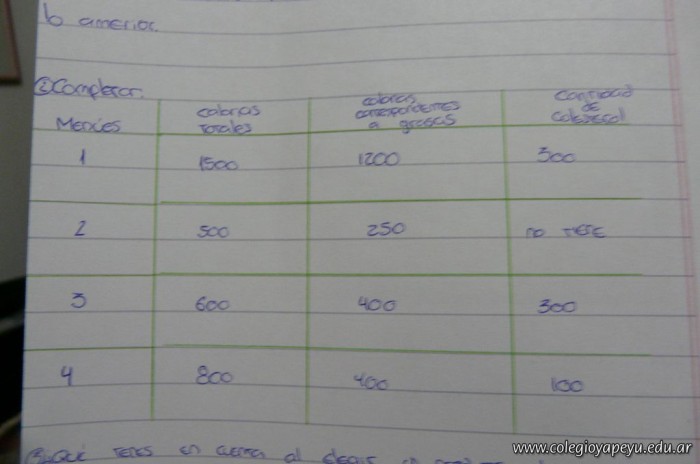 lo anterior.
② Completar.
Menúes | calorías totales | calorías correspondientes a grasas | cantidad de colesterol
1 | 1500 | 1200 | 300
2 | 500 | 250 | no tiene
3 | 600 | 400 | 300
4 | 800 | 400 | 100
Qué tenes en cuenta al elegir
www.colegioyapeyu.edu.ar